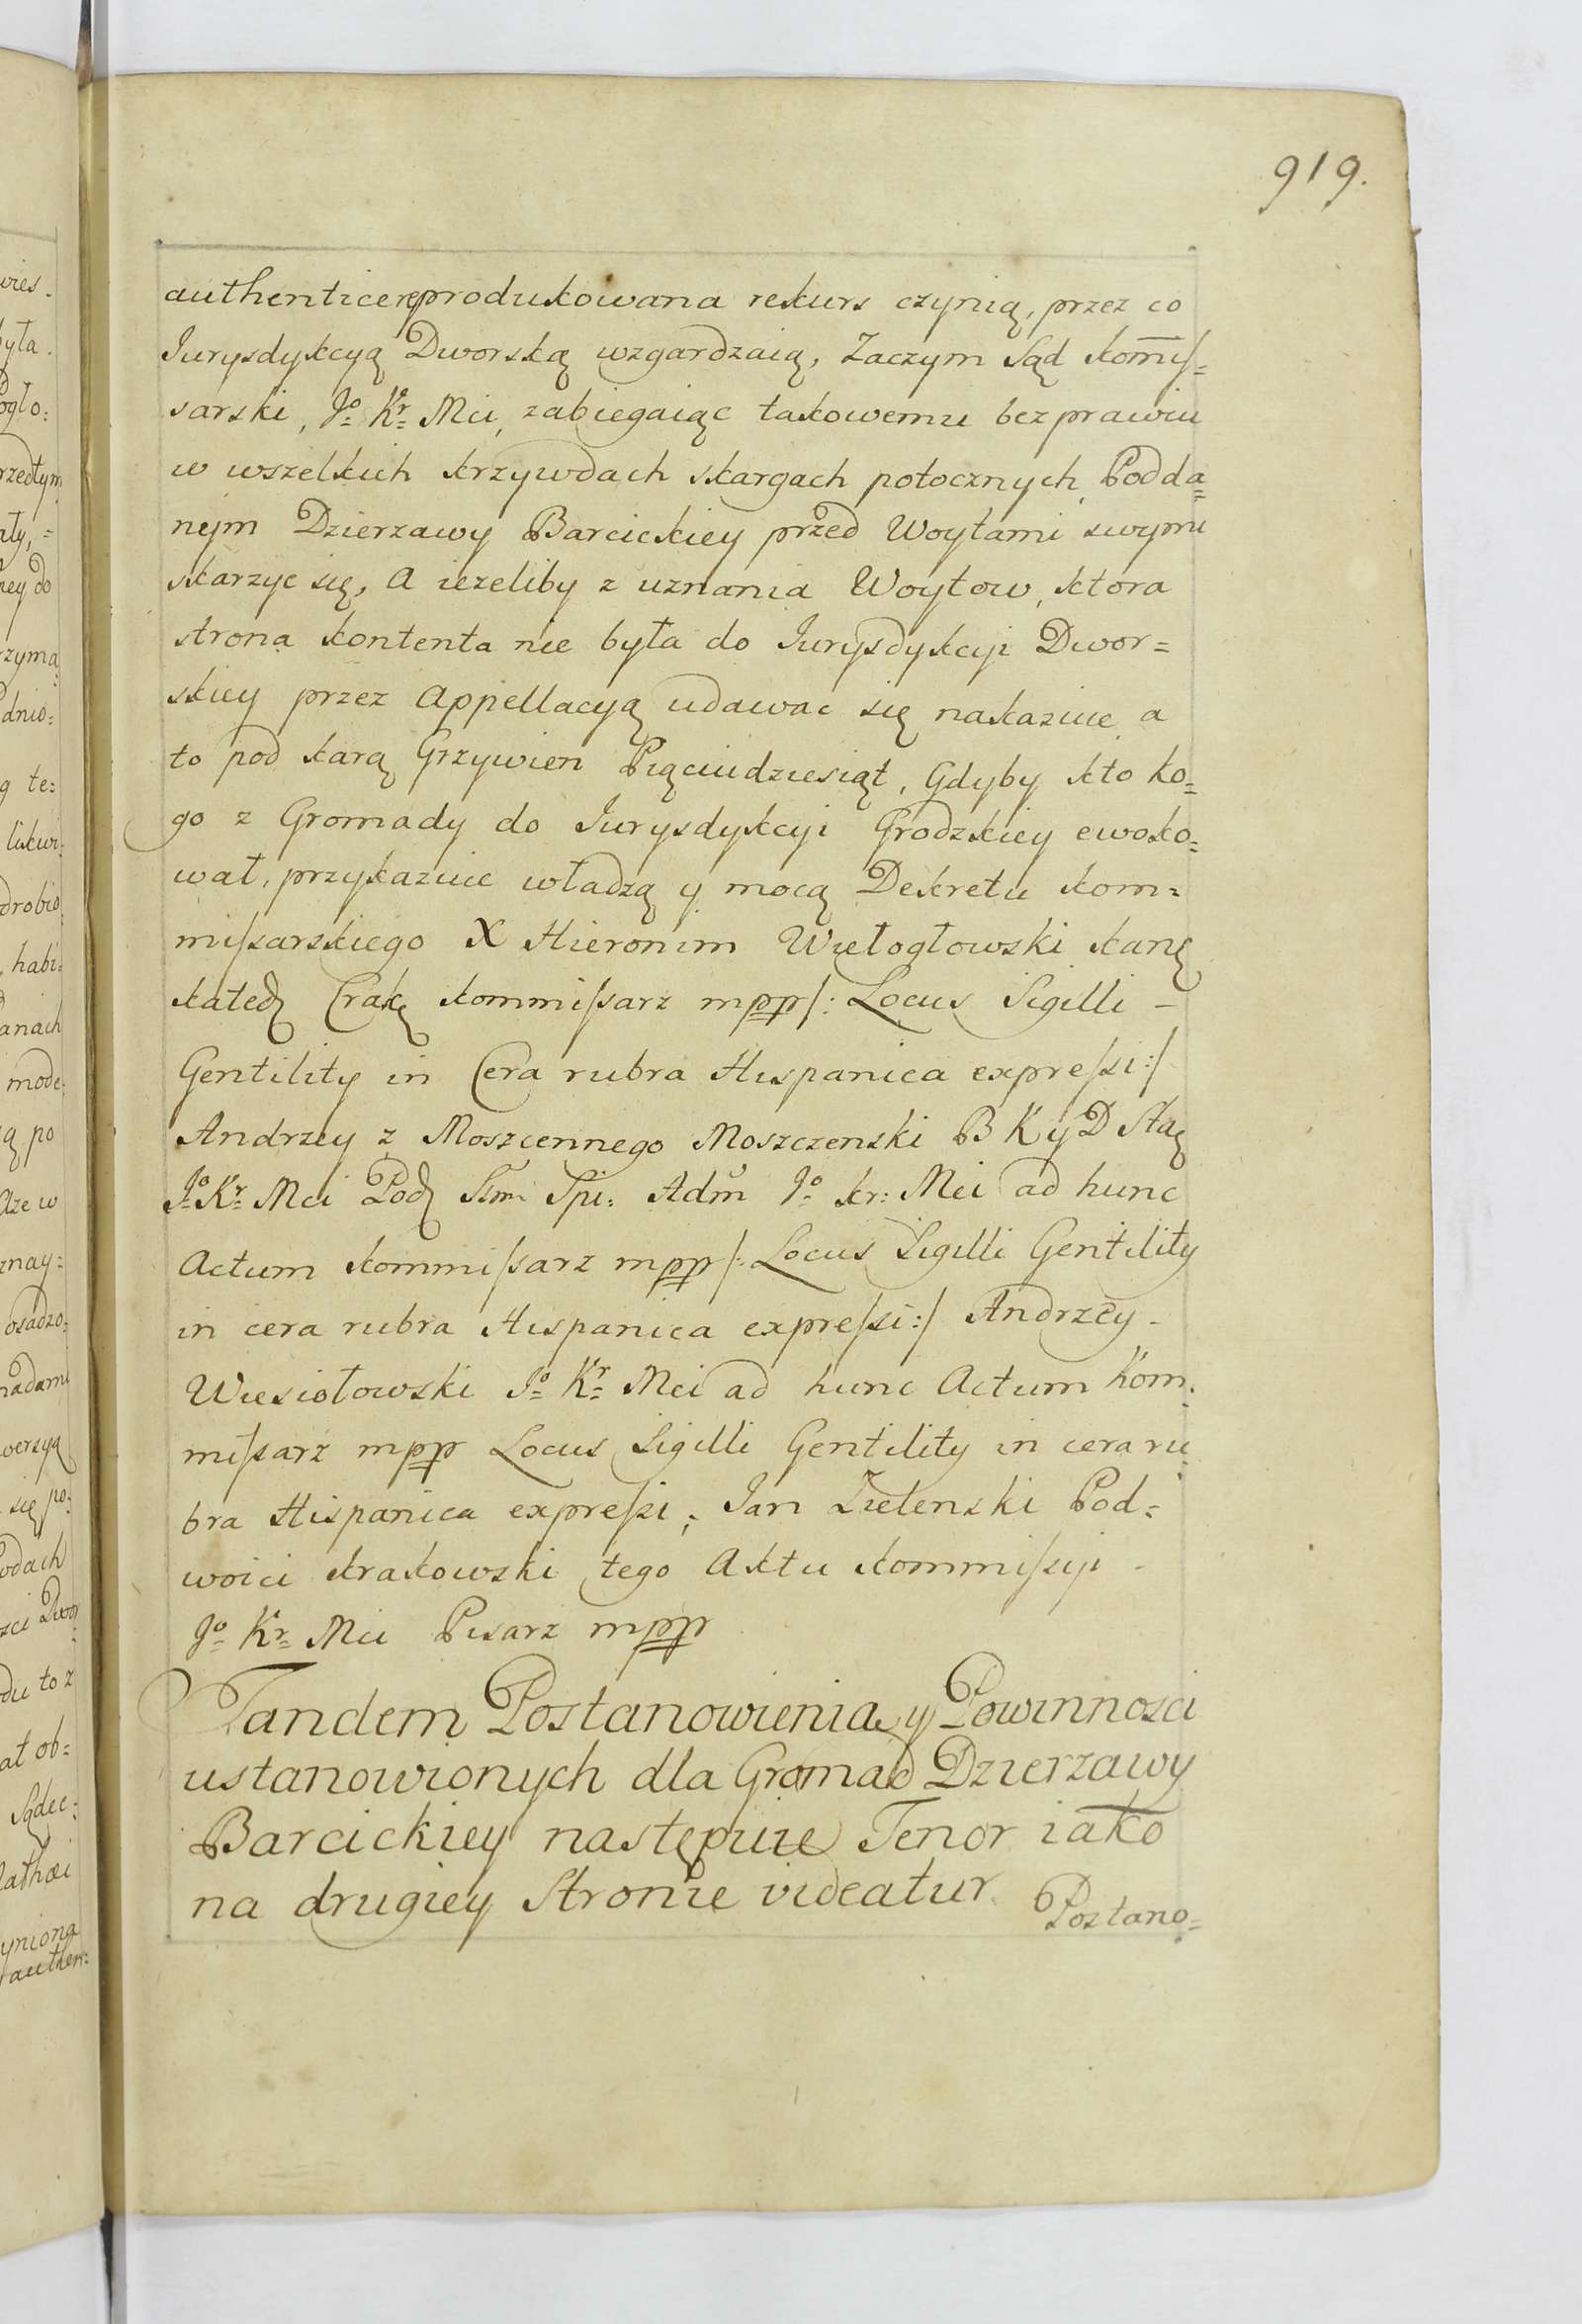 919.
authentice reprodukowana rekurs czynią, przez co
Jurysdykcyą Dworską wzgardzaią, Zaczym Sąd Kom̄is=
sarski, Jº Kr Mci, zabiegaiąc takowemu bezprawiu
w wszelkich krzywdach skargach potocznych, Podda=
nym Dzierzawy Barcickiey przed Woytami swymi
skarzyc się, A iezeliby z uznania Woytow, ktora
strona kontenta nie była do Jurysdykcyi Dwor=
skiey przez Appellacyą udawac się nakazuie, a
to pod karą Grzywien Pięciudziesiąt, Gdyby kto ko=
go z Gromady do Jurysdykcyi Grodzkiey ewoko=
wał, przykazuie władzą y mocą Dekretu Kom=
missarskiego X Hieronim Wielogłowski Kan
Kated Crak Kommissarz mpp/: Locus Sigilli –
Gentility in Cera rubra Hispanica expressi:/
Andrzey z Moszcennego Moszczenski B K y D Sta
Jº Kr Mci Pod Adm Jº kr: Mci ad hunc
Actum Kommissarz mpp/: Locus Sigilli Gentility
in cera rubra Hispanica expressi:/ Andrzey –
Wiesiołowski Jº Kr Mci ad hunc Actum Kom=
missarz mpp Locus Sigilli Gentility in cera ru=
bra Hispanica expressi; Jan Zielenski Pod=
woici krakowski tego Aktu Kommissyi –
Jº Kr Mci Pisarz mpp
Tandem Postanowienia y Powinnosci
ustanowionych dla Gromad Dzierzawy
Barcickiey następuie Tenor iako
na drugiey Stronie videatur
Postano=